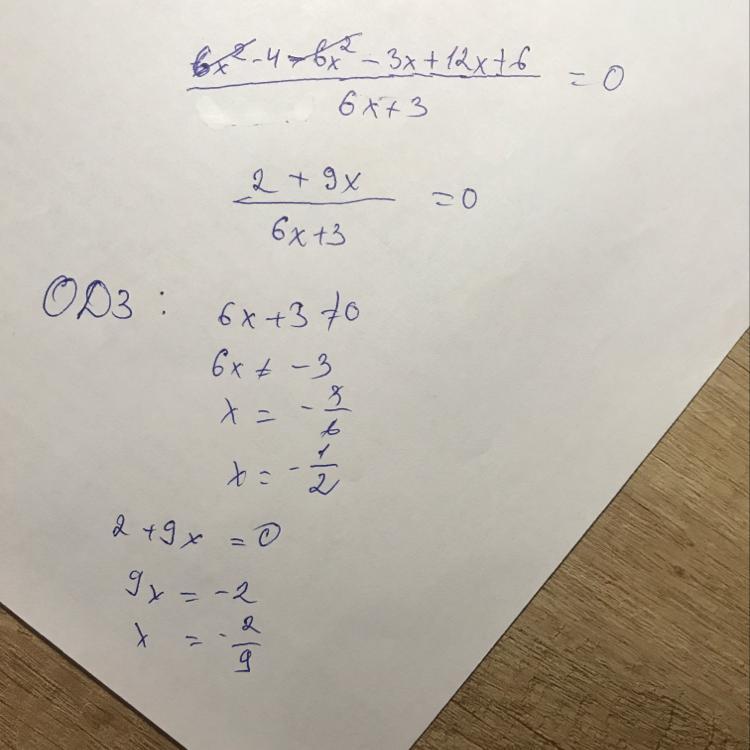 6x² - 4 - 6x² - 3x + 12x + 6 / 6x + 3 = 0
2 + 9x / 6x + 3 = 0
ОДЗ : 6x + 3 ≠ 0
6x ≠ -3
x = - 3/6
x = - 1/2
2 + 9x = 0
9x = -2
x = - 2/9